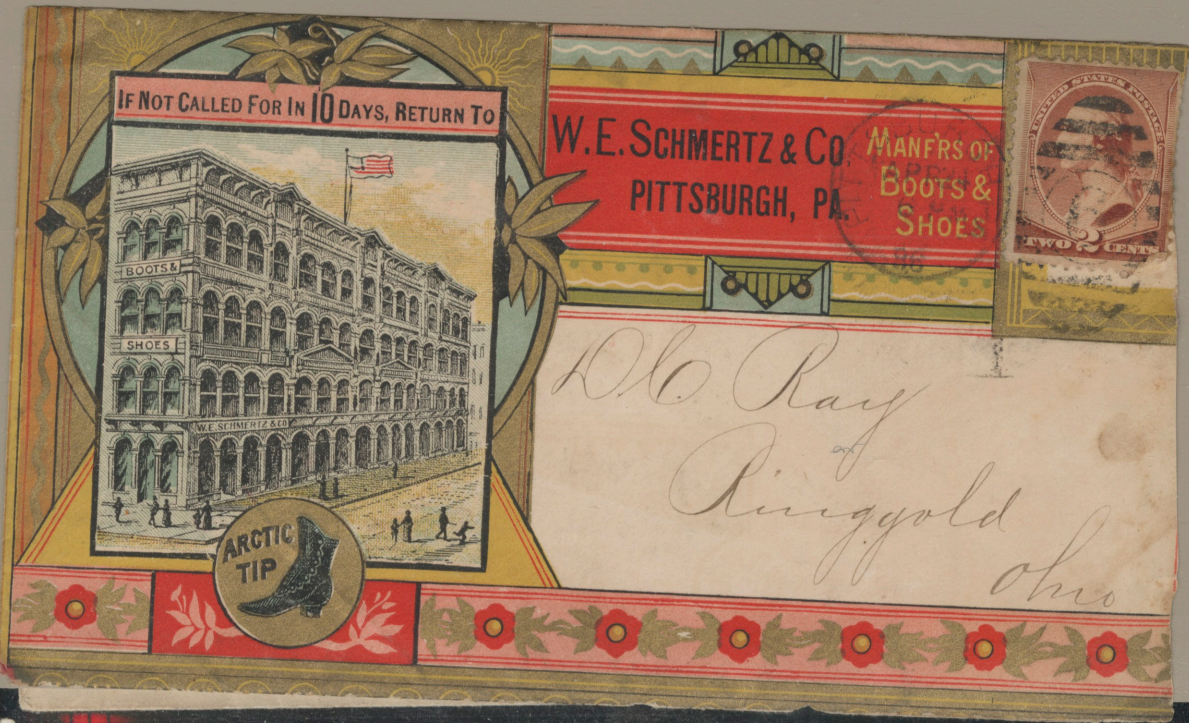 IF NOT CALLED FOR IN 10 DAYS, RETURN TO
W. E. SCHMERTZ & CO
PITTSBURGH, PA.
MANF'RS OF
BOOTS &
SHOES
UNITED STATES POSTAGE
TWO 2 CENTS
BOOTS &
SHOES
W. E. SCHMERTZ & CO
ARCTIC
TIP
D C Ray
Ringgold
Ohio